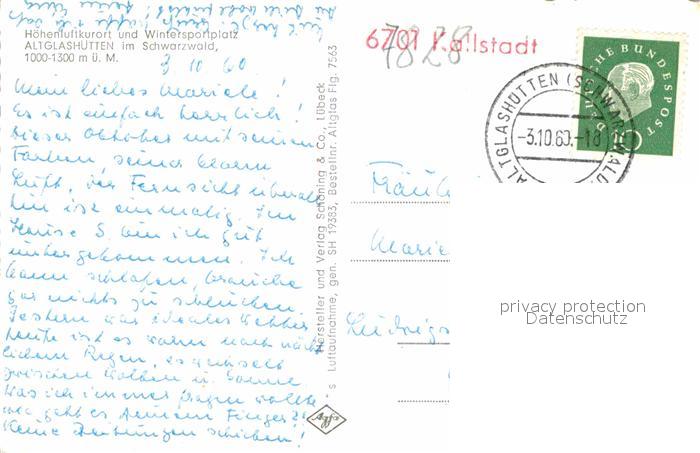 Höhenluftkurort und Wintersportplatz
ALTGLASHÜTTEN im Schwarzwald,
1000-1300 m ü. M.
3 10 60
Mein liebes Mariele!
Es ist einfach herrlich!
Dieser Oktober mit seinen
Farben, seiner klaren
Luft, der Fernsicht überall
hin ist einmalig. Im
Hause S. bin ich gut
untergekommen. Ich
kann schlafen, brauche
gar nichts zu schlucken.
Gestern war ideales Wetter
heute ist es warm nach nächt-
lichem Regen, es wechselt
zwischen Wolken u. Sonne
Was ich immer fragen wollte:
wie geht es Deinem Finger??
Keine Zeitungen schicken!
Hersteller und Verlag Schöning & Co., Lübeck
s Luftaufnahme, gen. SH 19383, Bestellnr. Altglas Flg. 7563
Agfa
6701 Kallstadt
7828
DEUTSCHE BUNDESPOST
ALTGLASHÜTTEN (SCHWARZWALD)
-3.10.60.-18
Fräul
Marie
Ludwigs
privacy protection
Datenschutz